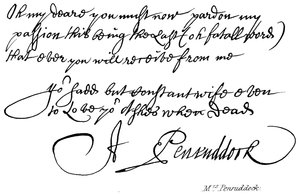 Oh my deare you must now pardon my
passion this being the Last (oh fatall words)
that ever you will receive from me
yor sadd but constant wife even
to Love yor ashes when dead
A Penruddock
Mrs. Penruddock